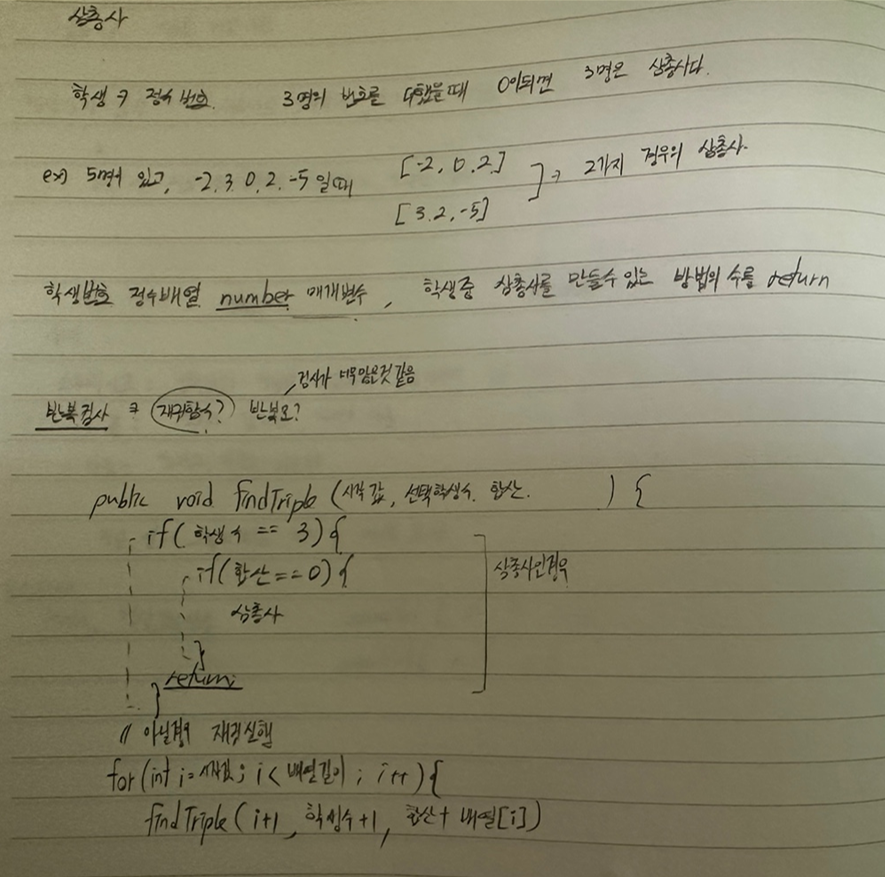 삼총사
학생 → 정수 번호. 3명의 번호를 더했을때 0이되면 3명은 삼총사다.
ex) 5명이 있고, -2, 3, 0, 2, -5 일때 [-2, 0, 2] ] → 2가지 경우의 삼총사.
[3, 2, -5]
학생번호 정수배열 number 매개변수, 학생중 삼총사를 만들수 있는 방법의 수를 return
검사가 너무많은것 같음
반복검사 → 재귀함수? 반복문?
public void findTriple (시작값, 선택학생수, 합산. ) {
if( 학생수 == 3) {
if(합산==0) {
삼총사인경우
삼총사
}
return;
}
// 아닐경우 재귀실행
for(int i=시작값; i < 배열길이; i++) {
findTriple( i+1, 학생수+1, 합산+ 배열[i])